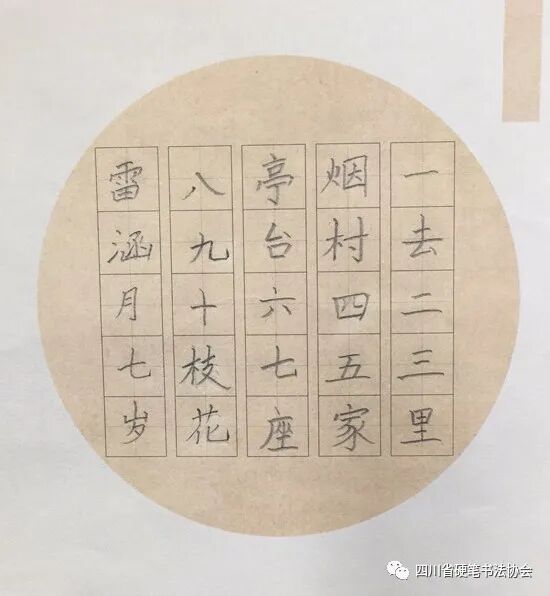 一去二三里
烟村四五家
亭台六七座
八九十枝花
雷涵月七岁
四川省硬笔书法协会